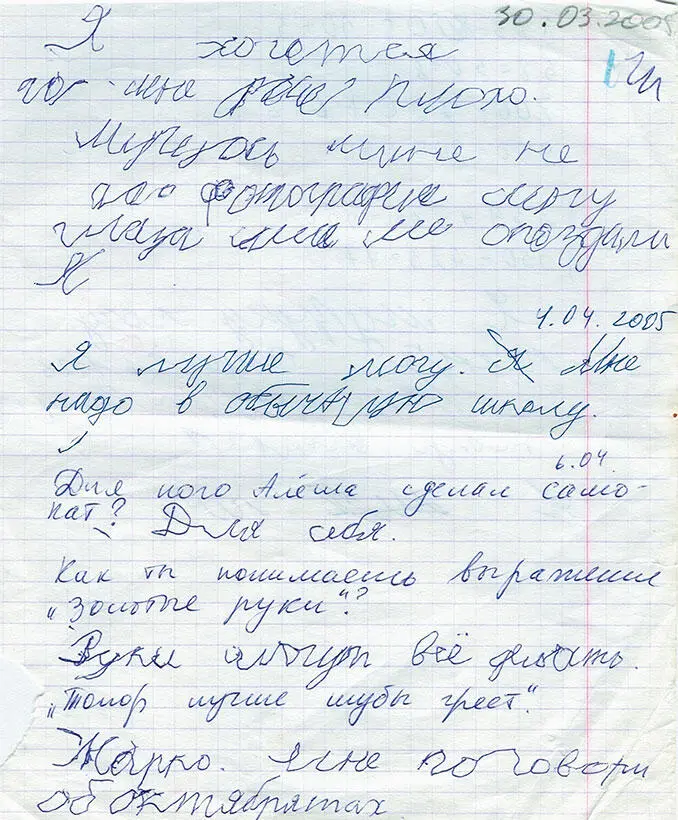 30.03.2005
Я хочется
мне плохо.
мне не
фотографие могу
глаза мне не опоздали
Я
4.04.2005
Я лучше могу. Я Мне
надо в обычную школу.
6.04.
Для кого Алёша сделал само-
кат? Для себя.
Как ты понимаешь выражение
„Золотые руки"?
Руки могут всё делать.
„Топор лучше шубы греет".
Жарко. Мне поговори
об октябрятах